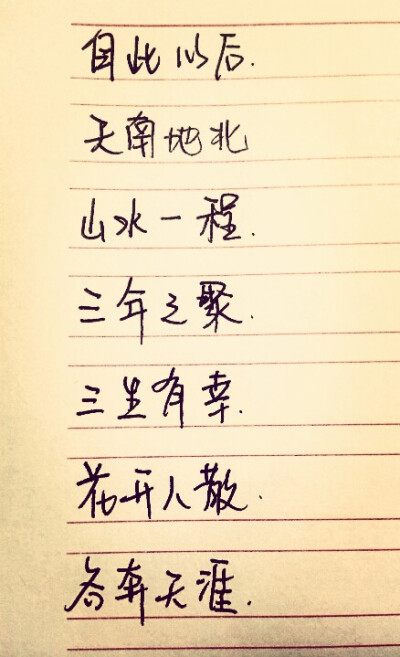 自此以后.
天南地北
山水一程.
三年之聚.
三生有幸.
花开人散.
各奔天涯.